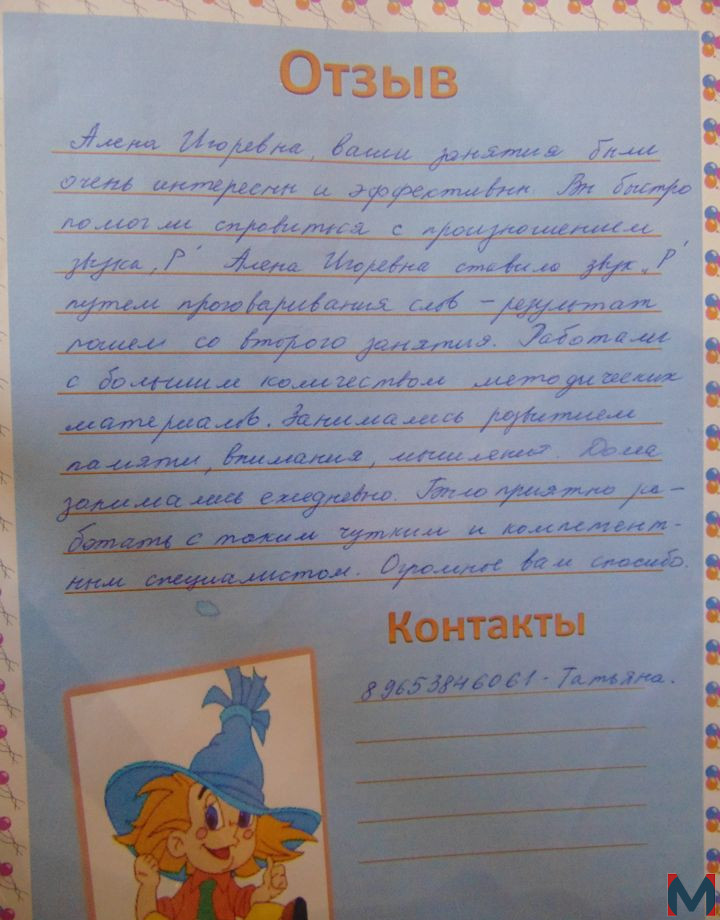 Отзыв
Алена Игоревна, ваши занятия были
очень интересны и эффективны. Вы быстро
помогли справиться с произношением
звука „Р“ Алена Игоревна ставила звук „Р“
путем проговаривания слов – результат
пошел со второго занятия. Работали
с большим количеством методических
материалов. Занимались развитием
памяти, внимания, мышления. Дома
занимались ежедневно. Было приятно ра-
ботать с таким чутким и компетент-
ным специалистом. Огромное вам спасибо.
Контакты
89653846061 - Татьяна.
M